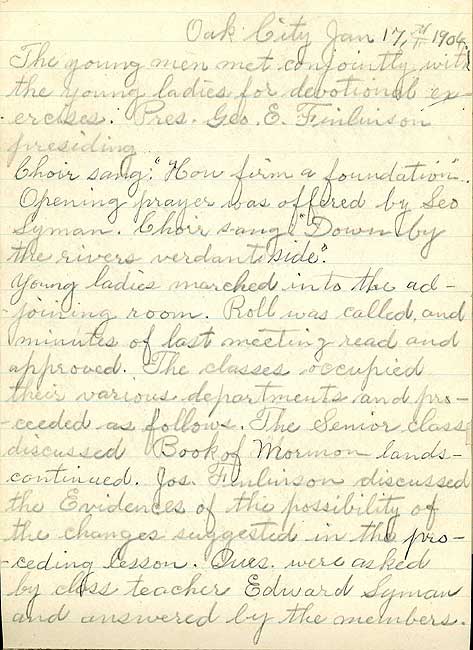 Oak City Jan 17, th 1906
The young men met conjointly with
the young ladies for devotional ex-
ercises. Pres. Geo. E. Finlinson
presiding
Choir sang: "How firm a foundation".
Opening prayer was offered by Geo
Lyman. Choir sang "Down by
the rivers verdant side".
Young ladies marched into the ad-
-joining room. Roll was called, and
minutes of last meeting read and
approved. The classes occupied
their various departments and pro-
-ceeded as follows. The Senior class
discussed Book of Mormon lands-
continued. Jos. Finlinson discussed
the Evidences of the possibility of
the changes suggested in the pro-
-ceding lesson. Ques. were asked
by class teacher Edward Lyman
and answered by the members.